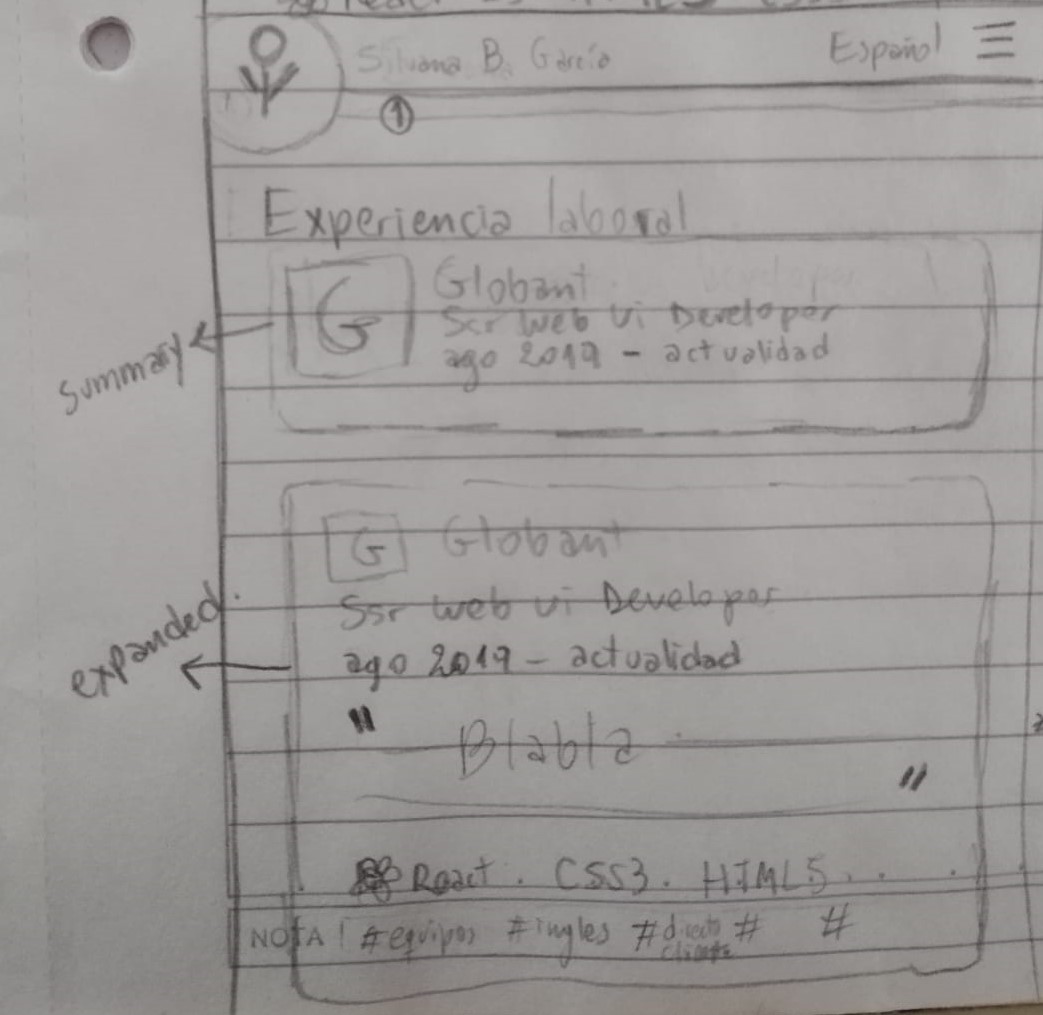 Silvana B. García
Español
1
Experiencia laboral
G
Globant
Ssr web Ui Developer
ago 2019 - actualidad
summary
G Globant
Ssr web ui Developer
ago 2019 - actualidad
expanded
"
Blabla
"
React. CSS3. HTML5. . .
NOTA! #equipos #ingles #directo cliente # #